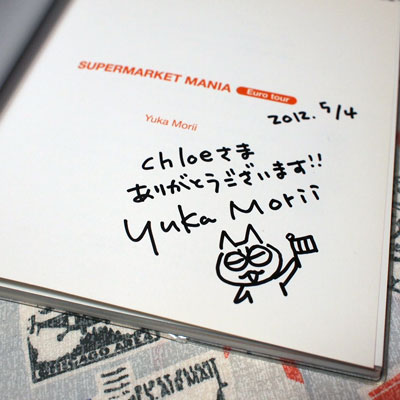 SUPERMARKET MANIA Euro tour
Yuka Morii
2012. 5/4
chloeさま
ありがとうございます!!
Yuka Morii